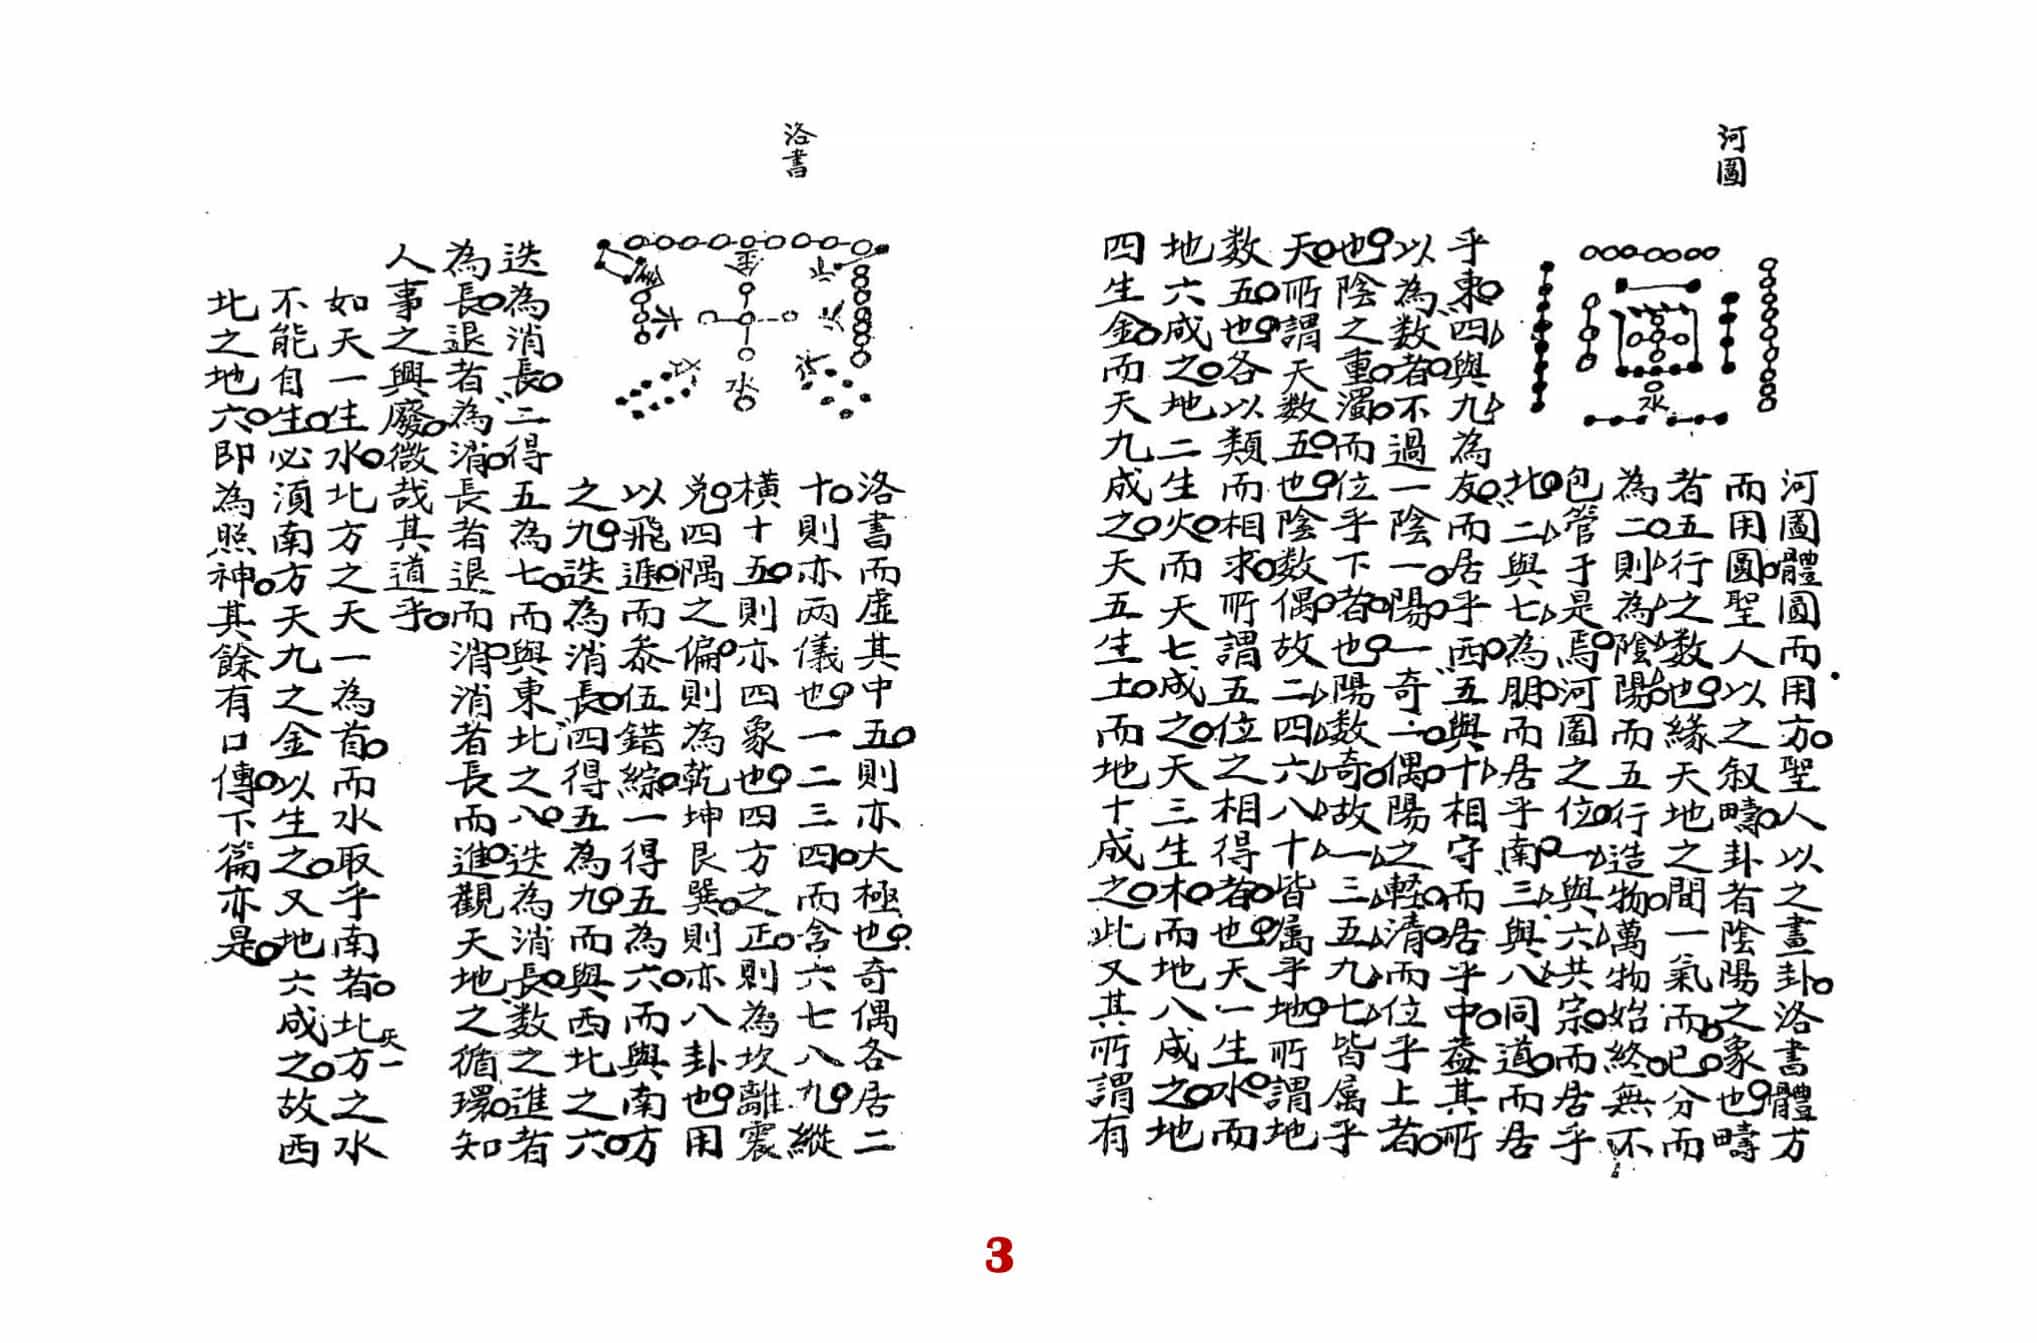 河圖
河圖體圓而用方聖人以之畫卦洛書體方
而用圓聖人以之叙疇卦者陰陽之象也疇
者五行之数也緣天地之間一氣而已分而
為二則為陰陽而五行造物萬物始終無不
包管于是焉河圖之位一與六共宗而居乎
北二與七為朋而居乎南三與八同道而居
乎東四與九為友而居乎西五與十相守而居乎中蓋其所
以為数者不過一陰一陽一奇一偶陽之軽清而位乎上者
也陰之重濁而位乎下者也陽数奇故一三五九七皆属乎
天所謂天数五也陰数偶故二四六八十皆属乎地所謂地
数五也各以類而相求所謂五位之相得者也天一生水而
地六成之地二生火而天七成之天三生木而地八成之地
四生金而天九成之天五生土而地十成之此又其所謂有
水
3
洛書
洛書而虛其中五則亦大極也奇偶各居二
十則亦两儀也一二三四而含六七八九縱
橫十五則亦四象也四方之正則為坎離震
兌四隅之偏則為乾坤艮巽則亦八卦也用
以飛進而叅伍錯綜一得五為六而與南方
之九迭為消長四得五為九而與西北之六
迭為消長二得五為七而與東北之八迭為消長数之進者
為長退者為消長者退而消消者長而進觀天地之循環知
人事之興廢微哉其道乎
如天一生水北方之天一為首而水取乎南者北方之水
天一
不能自生必湏南方天九之金以生之又地六成之故西
北之地六即為照神其餘有口傳下篇亦是
金
木
水